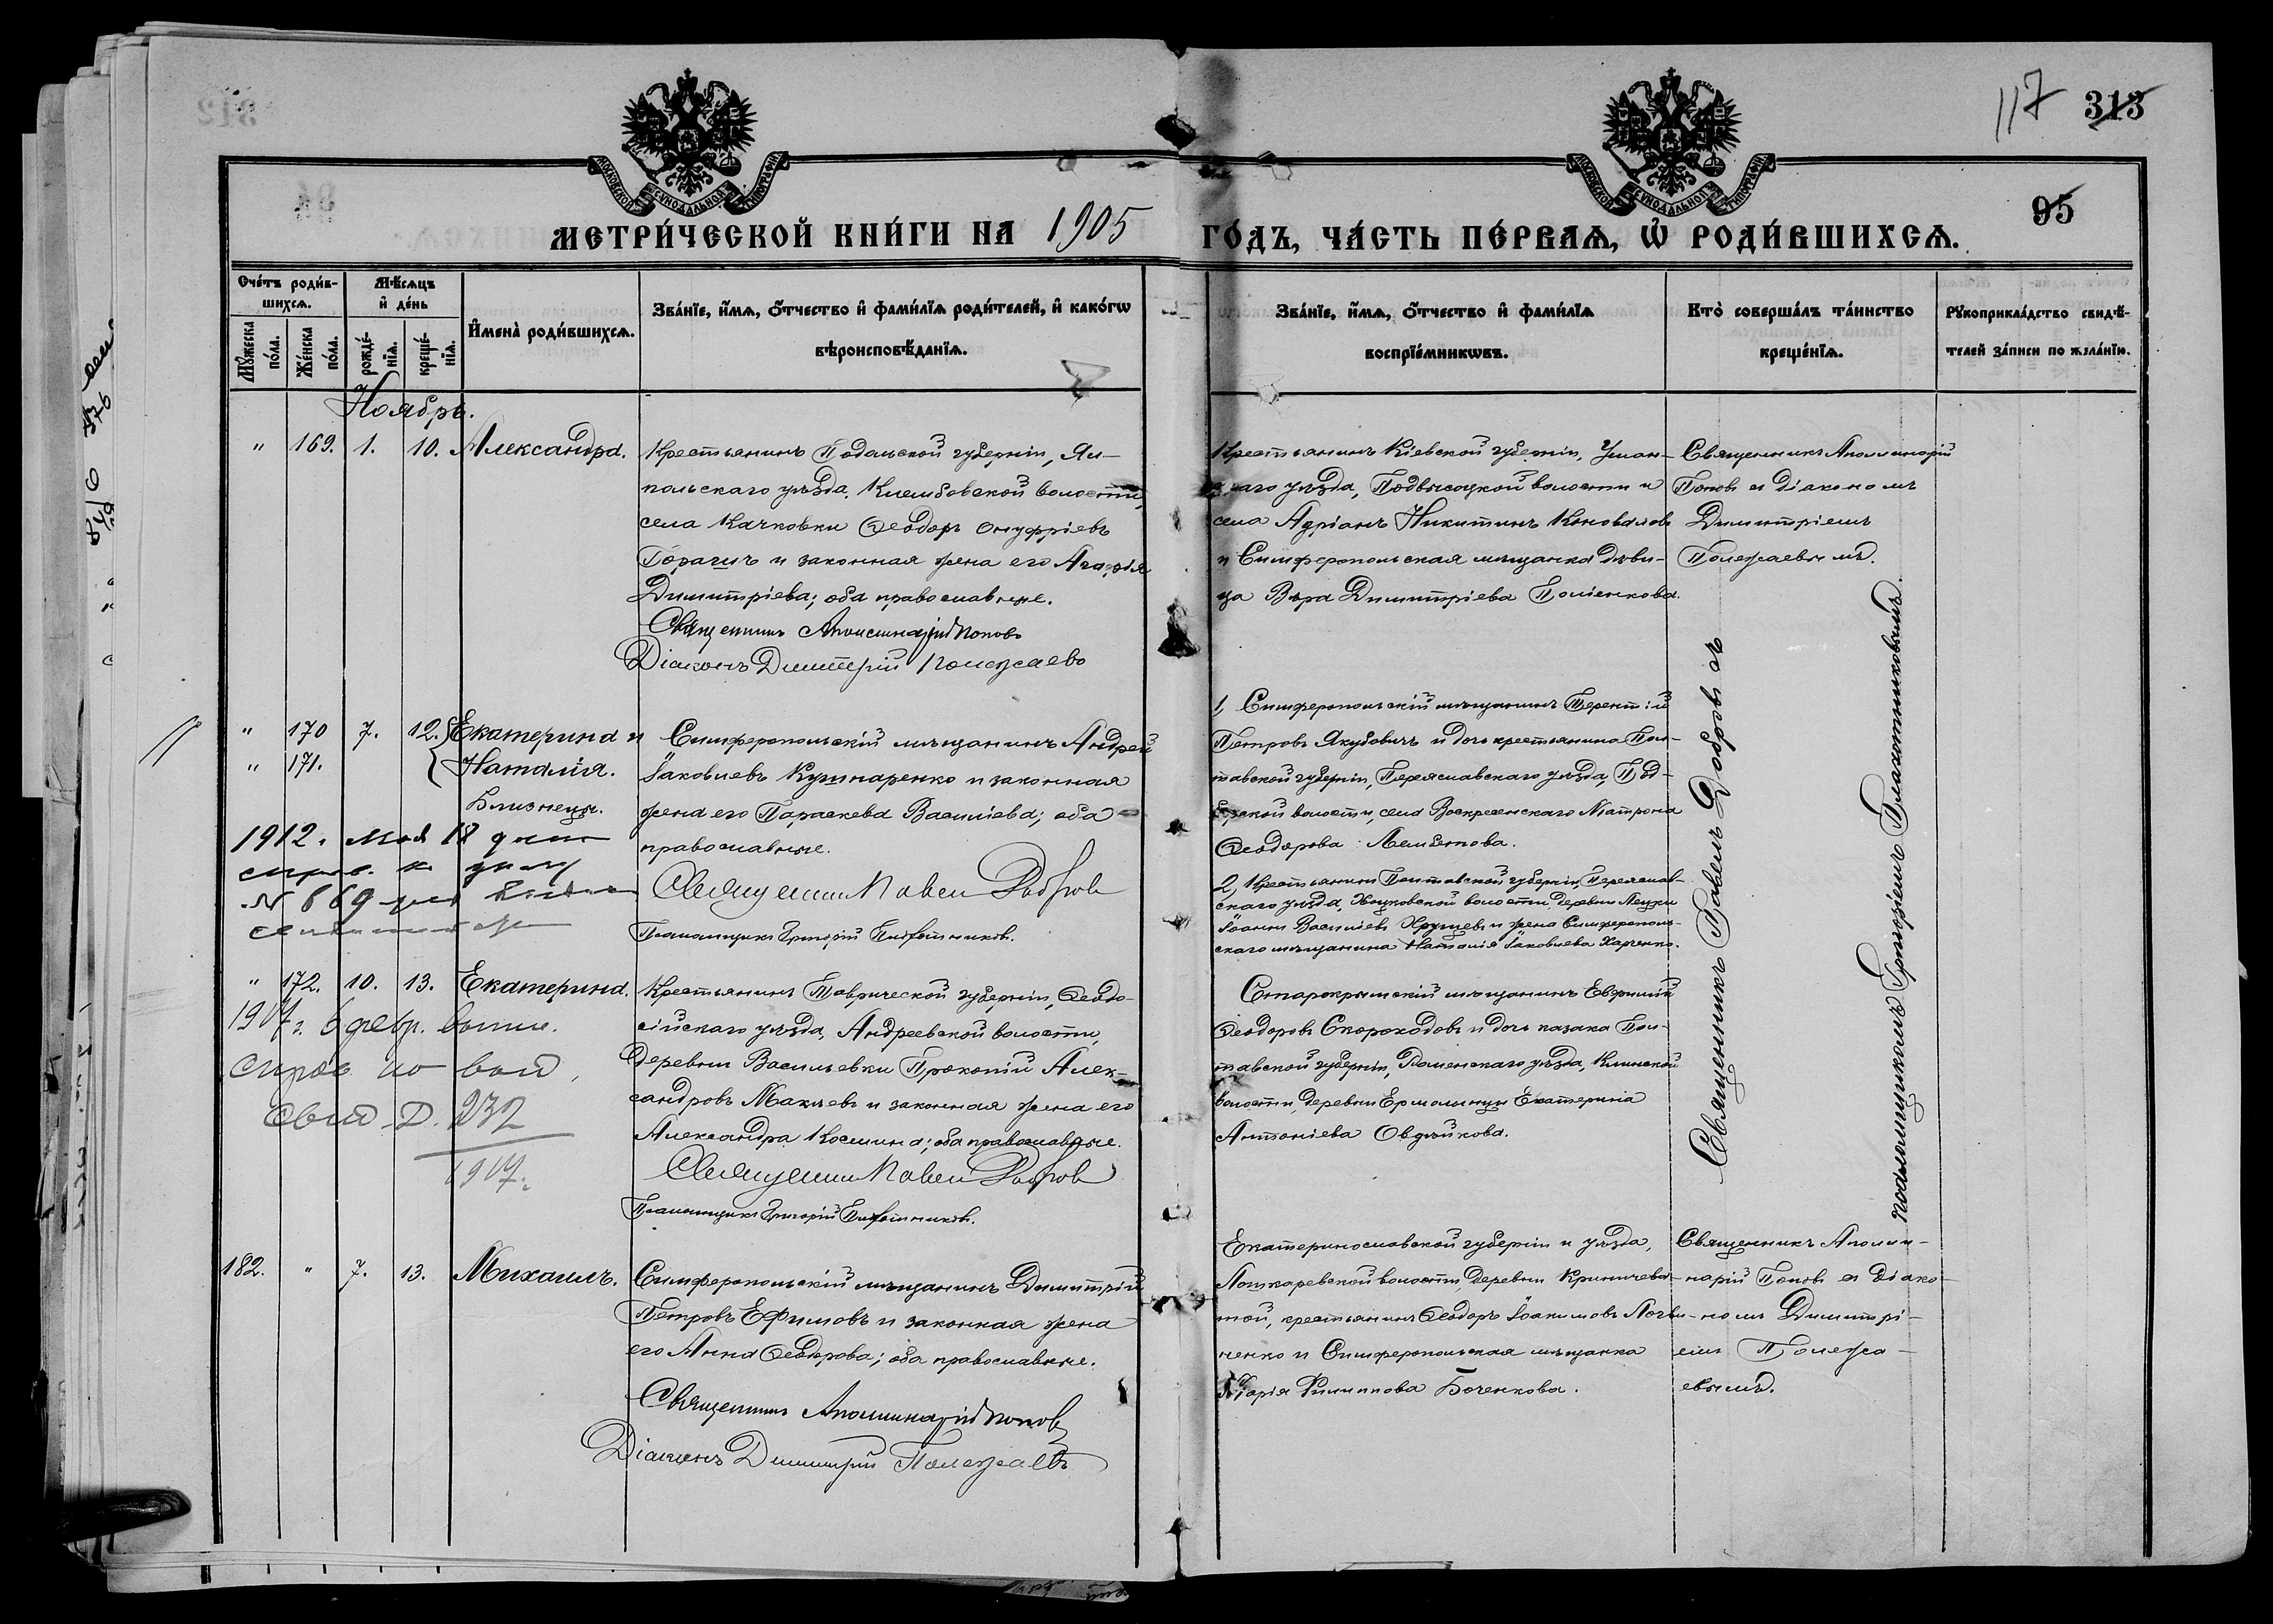 117 313
95
МОСКОВСКОЙ СѴНОДАЛЬНОЙ ТИПОГРАФІИ
МОСКОВСКОЙ СѴНОДАЛЬНОЙ ТИПОГРАФІИ
МЕТРИ́ЧЕСКОЙ КНИ́ГИ НА 1905 ГО́ДЪ, ЧА́СТЬ ПЕ́РВАѦ, Ѡ РОДИ́ВШИХСѦ.
Сче́тъ роди́в-
шихсѧ.
Мꙋ́жеска по́ла.
Же́нска по́ла.
Мѣ́сѧцъ
и҆ де́нь
рожде́-
нїѧ.
креще́-
нїѧ.
И҆мена̀ роди́вшихсѧ.
Зва́нїе, и҆́мѧ, ѻ҆́тчество и҆ фами́лїѧ роди́телей, и҆ како́гѡ
вѣроисповѣ́данїѧ.
Зва́нїе, и҆́мѧ, ѻ҆́тчество и҆ фами́лїѧ
воспрїе́мникѡвъ.
Кто̀ соверша́лъ та́инство
креще́нїѧ.
Рꙋкоприкла́дство свидѣ́-
телей за́писи по жела́нїю.
Ноябрь.
" 169. 1. 10. Александра.
Крестьянинъ Подольской губерніи, Ям-
польскаго уѣзда, Клембовской волости,
села Качковки Ѳеодоръ Онуфріевъ
и законная жена его Агафія
Димитріева; оба православные.
Священникъ Аполлинарій Поповъ
Діаконъ Димитрій Полежаевъ
Крестьянинъ Кіевской губерніи, Уман-
скаго уѣзда, Подвысоцкой волости и
села Адріанъ Никитинъ Коновалов
и Симферопольская мѣщанка дѣви-
ца Вѣра Димитріева Поліенкова.
Священникъ Аполлинарій
Поповъ съ діакономъ
Димитріемъ
Полежаевымъ.
" 170 7. 12. Екатерина и
" 171. Наталія.
Близнецы.
1912. Мая 18 дня
№ 669
Симферопольскій мѣщанинъ Андрей
Іаковлевъ Кушнаренко и законная
жена его Параскева Василіева; оба
православные.
Священникъ Павелъ Добровъ
Псаломщикъ Григорій Плахотниковъ.
1, Симферопольскій мѣщанинъ Терентій
Петровъ Якубовичъ и дочь крестьянина Пол-
тавской губерніи, Переяславскаго уѣзда,
волости, села Воскресенскаго Матрона
Ѳеодорова
2, Крестьянинъ Полтавской губерніи, Переяслав-
скаго уѣзда, волости, деревни
Іоаннъ Василіевъ и жена Симферополь-
скаго мѣщанина Наталія Іаковлева Харченко.
Священникъ Павелъ Добровъ съ
псаломщикомъ Григоріемъ Плахотниковымъ.
" 172. 10. 13. Екатерина.
1917 г. 6 февр.
232
1917.
Крестьянинъ Таврической губерніи, Ѳеодо-
сійскаго уѣзда, Андреевской волости,
деревни Васильевки Прокопій Алек-
сандровъ и законная жена его
Александра Космина; оба православные.
Священникъ Павелъ Добровъ
Псаломщикъ Григорій Плахотниковъ.
Старокрымскій мѣщанинъ Евфимій
Ѳеодоровъ Скороходовъ и дочь казака Пол-
тавской губерніи, Роменскаго уѣзда,
волости, деревни Екатерина
Антоніева
182. " 7. 13. Михаилъ.
Симферопольскій мѣщанинъ Димитрій
Петровъ Ефимовъ и законная жена
его Анна Ѳеодорова; оба православные.
Священникъ Аполлинарій Поповъ
Діаконъ Димитрій Полежаевъ
Екатеринославской губерніи и уѣзда,
Лошкаревской волости, деревни Криничева-
той, крестьянинъ Ѳеодоръ Іоакимовъ
и Симферопольская мѣщанка
Марія Филиппова Боченкова.
Священникъ Аполли-
нарій Поповъ съ діако-
номъ Димитрі-
емъ Полежа-
евымъ.